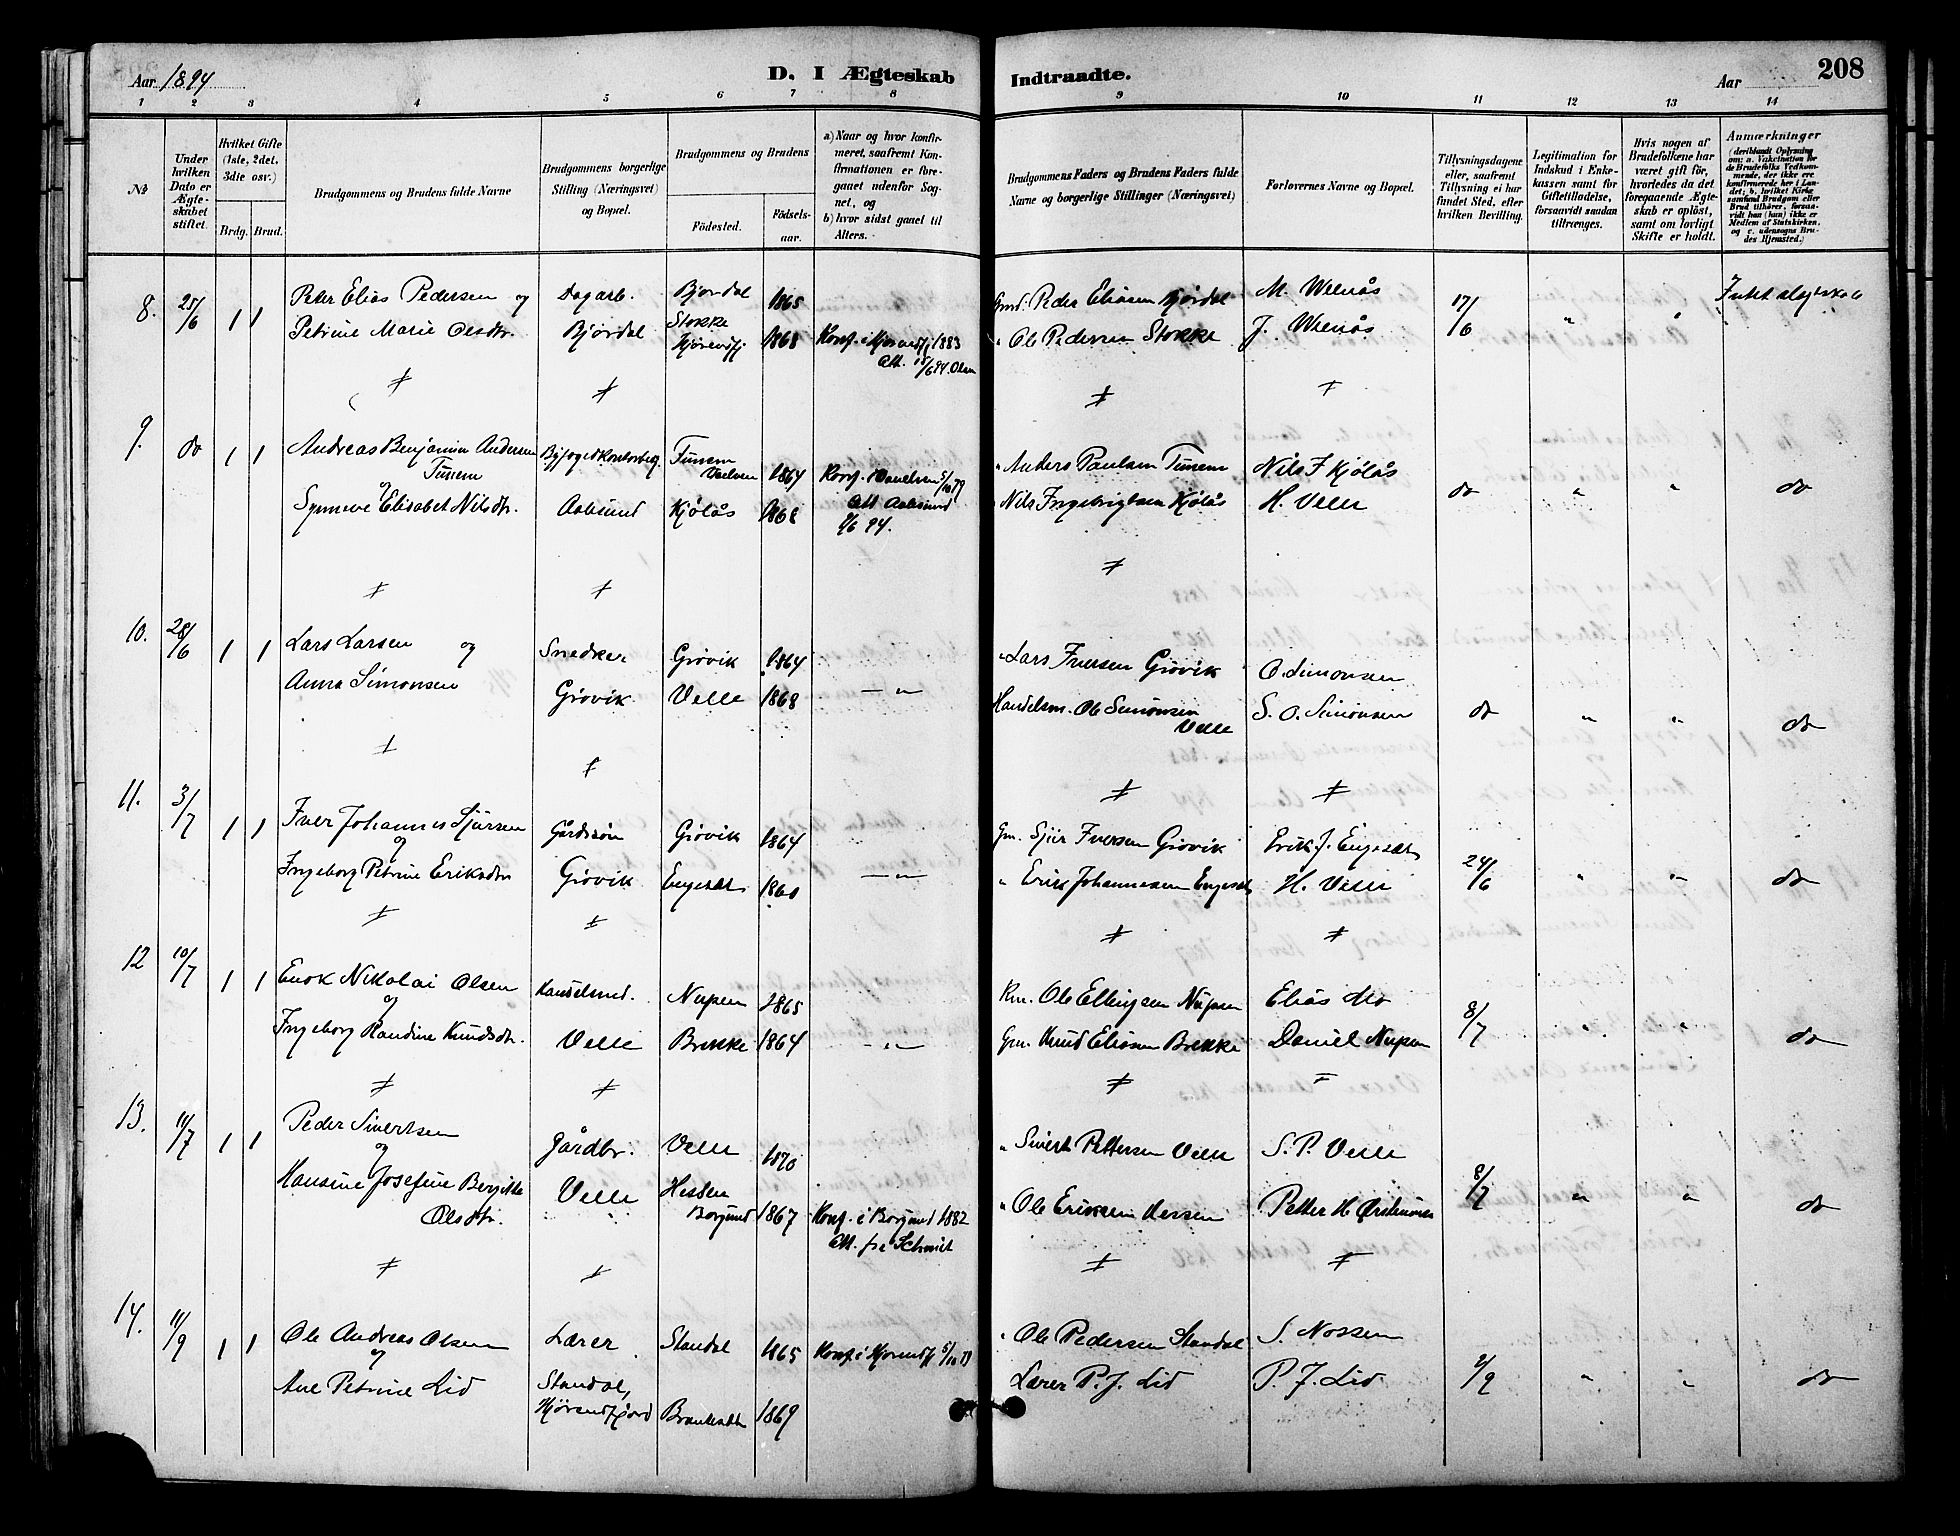 Aar 1894
D. I Ægteskab Indtraadte.
Aar
208
1 2 3 4 5 6 7 8 9 10 11 12 13 14
No
Under hvilken Dato er Ægteskabet stiftet.
Hvilket Gifte (1ste, 2det, 3die osv.)
Brdg. Brud.
Brudgommens og Brudens fulde Navne
Brudgommens borgerlige Stilling (Næringsvei) og Bopæl.
Brudgommens og Brudens
Födested.
Födselsaar.
a) Naar og hvor konfirmeret, saafremt Konfirmationen er foregaaet udenfor Sognet, og
b) hvor sidst gaaet til Alters.
Brudgommens Faders og Brudens Faders fulde Navne og borgerlige Stillinger (Næringsvei)
Forlovernes Navne og Bopæl.
Tillysningsdagene eller, saafremt Tillysning ei har fundet Sted, efter hvilken Bevilling.
Legitimation for Indskud i Enkekassen samt for Giftetilladelse, forsaavidt saadan tiltrænges.
Hvis nogen af Brudefolkene har været gift för, hvorledes da det foregaaende Ægteskab er oplöst, samt om lovligt Skifte er holdt.
Anmærkninger
(deriblandt Oplysning om: a. Vakcination for de Brudefolks Vedkommende, der ikke ere konfirmerede her i Landet; b. hvilket Kirkesamfund Brudgom eller Brud tilhører, forsaavidt han (hun) ikke er Medlem af Statskirken, og c. udensogns Brudes Hjemsted.)
8. 25/6 1 1 Peter Elias Pedersen og Dagarb. Bjordal 1865 Gmd. Peder Eliasen Bjørdal M. Welnås 17/6 " "
Petrine Marie Olsdtr. Bjørdal Stokke Hjørendfj 1868 Konf. i Hjørendfj 1883 " Ole Pedersen Stokke J. Welnås
Att. 15/6 94. Olsen
9. do 1 1 Andreas Benjamin Andersen Tunem 1864 " Anders Paulsen Tunem Nils I Kjølås do " " do
og
Synneve Elisabet Nilsdtr. Aalesund Kjølås 1868 Att Aalesund Nils Ingebrigtsen Kjølås H. Velle
9/6 94.
10. 28/6 1 1 Lars Larsen og Snedker Grøvik 1864 " Lars Iversen Grøvik O. Simonsen
Anna Simonsen Grøvik Velle 1868 — " Handelsm. Ole Simonsen Velle S. O. Simonsen do " " do
11. 3/7 1 1 Iver Johannes Sjursen Gårdsøn Grøvik 1864 Gm. Sjur Iversen Grøvik Erik J. Engeset
og
Ingeborg Petrine Eriksdtr Grøvik Engeset 1860 — " " Erik Johannesen Engeset H. Velle 24/6 " " do
12 10/7 1 1 Enok Nikolai Olsen Handelsmd. Nupen 1865 Ole Ellingsen Nupen Elias Mo 8/7
og
Ingeborg Randine Knudsdtr. Velle Brekke 1864 — " Gm. Knud Eliasen Brekke Daniel Nupen " " do
13. 11/7 1 1 Peder Sivertsen Gårdbr. Velle 1870 " Sivert Pettersen Velle S. P. Velle 8/7 " " do
og
Hansine Josefine Bergitte Olsdtr. Velle Hessen Borgund 1867 Konf. i Borgund 1882 " Ole Eriksen Petter H
Att. fra Schmidt
14. 11/9 1 1 Ole Andreas Olsen Lærer Standal 1865 Konf. i Hjørendfj 5/10 79 " Ole Pedersen Standal S. Nossen
og
Ane Petrine Lid Standal, Hjørendfjord 1869 Lærer P. J. Lid P. J. Lid 2/9 " " do